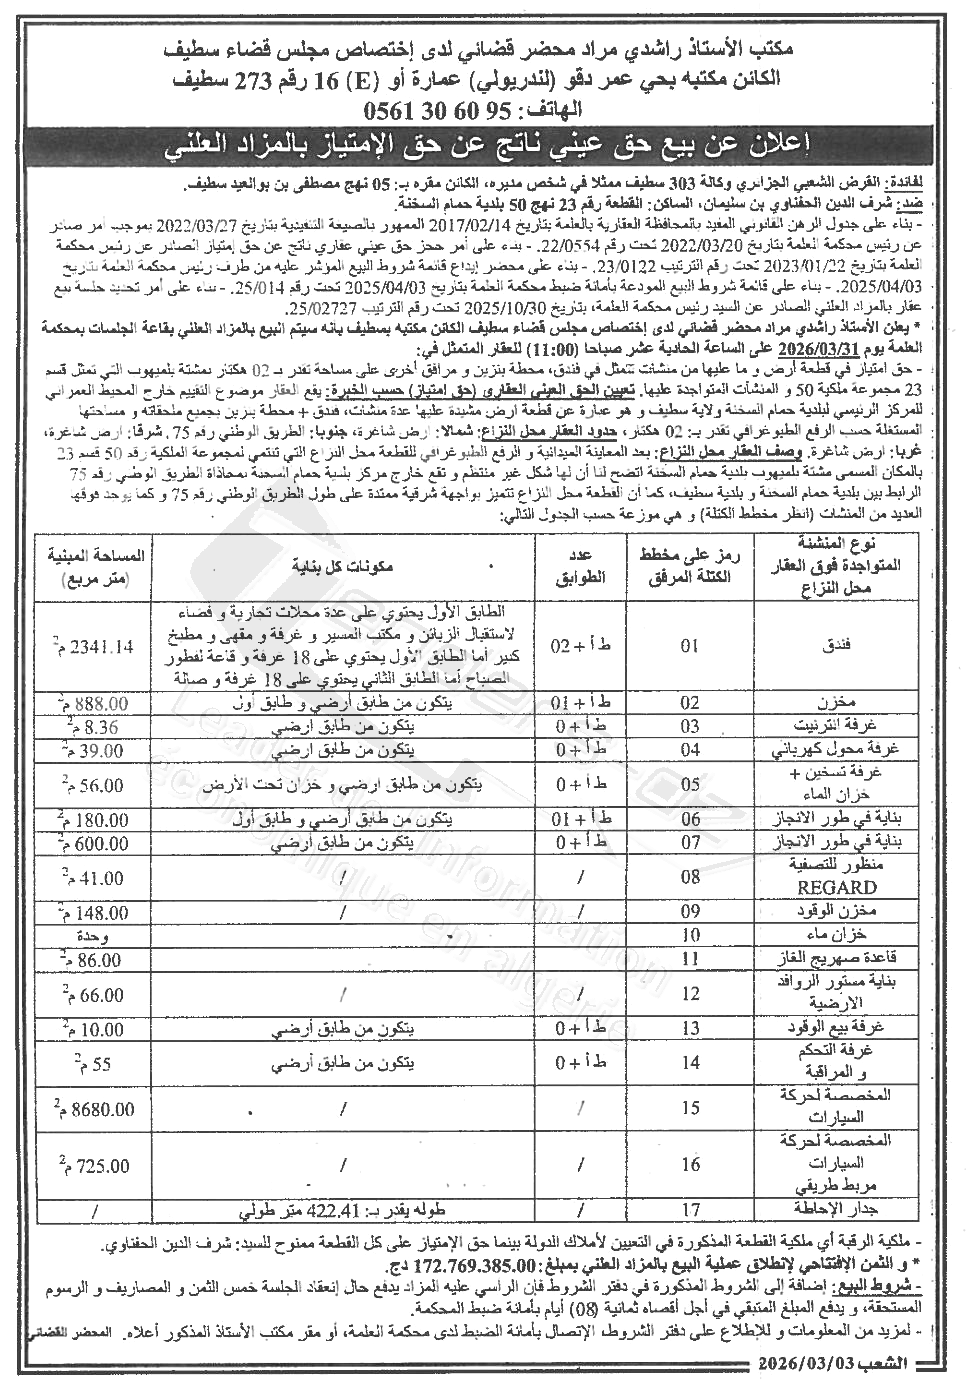 مكتب الأستاذ راشدي مراد محضر قضائي لدى إختصاص مجلس قضاء سطيف
الكائن مكتبه بحي عمر دقو (لندريولي) عمارة أو (E) 16 رقم 273 سطيف
الهاتف: 0561 30 60 95
إعلان عن بيع حق عيني ناتج عن حق الإمتياز بالمزاد العلني
لفائدة: القرض الشعبي الجزائري وكالة 303 سطيف ممثلا في شخص مديره، الكائن مقره بـ: 05 نهج مصطفى بن بوالعيد سطيف.
ضد: شرف الدين الحفناوي بن سليمان، الساكن: القطعة رقم 23 نهج 50 بلدية حمام السخنة.
- بناء على جدول الرهن القانوني المقيد بالمحافظة العقارية بالعلمة بتاريخ 2017/02/14 الممهور بالصيغة التنفيذية بتاريخ 2022/03/27 بموجب أمر صادر
عن رئيس محكمة العلمة بتاريخ 2022/03/20 تحت رقم 22/0554. - بناء على أمر حجز حق عيني عقاري ناتج عن حق إمتياز الصادر عن رئيس محكمة
العلمة بتاريخ 2023/01/22 تحت رقم الترتيب 23/0122. - بناء على محضر إيداع قائمة شروط البيع المؤشر عليه من طرف رئيس محكمة العلمة بتاريخ
2025/04/03. - بناء على قائمة شروط البيع المودعة بأمانة ضبط محكمة العلمة بتاريخ 2025/04/03 تحت رقم 25/014. - بناء على أمر تحديد جلسة بيع
عقار بالمزاد العلني الصادر عن السيد رئيس محكمة العلمة، بتاريخ 2025/10/30 تحت رقم الترتيب 25/02727.
* يعلن الأستاذ راشدي مراد محضر قضائي لدى إختصاص مجلس قضاء سطيف الكائن مكتبه بسطيف بأنه سيتم البيع بالمزاد العلني بقاعة الجلسات بمحكمة
العلمة يوم 2026/03/31 على الساعة الحادية عشر صباحا (11:00) للعقار المتمثل في:
- حق امتياز في قطعة أرض و ما عليها من منشآت تتمثل في فندق، محطة بنزين و مرافق أخرى على مساحة تقدر بـ 02 هكتار بمشتة بلميهوب التي تمثل قسم
23 مجموعة ملكية 50 و المنشآت المتواجدة عليها. تعيين الحق العيني العقاري (حق إمتياز) حسب الخبرة: يقع العقار موضوع التقييم خارج المحيط العمراني
للمركز الرئيسي لبلدية حمام السخنة ولاية سطيف و هو عبارة عن قطعة ارض مشيدة عليها عدة منشآت، فندق + محطة بنزين بجميع ملحقاته و مساحتها
المستغلة حسب الرفع الطبوغرافي تقدر بـ: 02 هكتار، حدود العقار محل النزاع: شمالا: ارض شاغرة، جنوبا: الطريق الوطني رقم 75، شرقا: ارض شاغرة،
غربا: ارض شاغرة. وصف العقار محل النزاع: بعد المعاينة الميدانية و الرفع الطبوغرافي للقطعة محل النزاع التي تنتمي لمجموعة الملكية رقم 50 قسم 23
بالمكان المسمى مشتة بلميهوب بلدية حمام السخنة اتضح لنا أن لها شكل غير منتظم و تقع خارج مركز بلدية حمام السخنة بمحاذاة الطريق الوطني رقم 75
الرابط بين بلدية حمام السخنة و بلدية سطيف، كما أن القطعة محل النزاع تتميز بواجهة شرقية ممتدة على طول الطريق الوطني رقم 75 و كما يوجد فوقها
العديد من المنشآت (انظر مخطط الكتلة) و هي موزعة حسب الجدول التالي:
نوع المنشئة المتواجدة فوق العقار محل النزاع | رمز على مخطط الكتلة المرفق | عدد الطوابق | مكونات كل بناية | المساحة المبنية (متر مربع)
فندق | 01 | ط أ + 02 | الطابق الأول يحتوي على عدة محلات تجارية و فضاء لاستقبال الزبائن و مكتب المسير و غرفة و مقهى و مطبخ كبير أما الطابق الأول يحتوي على 18 غرفة و قاعة لفطور الصباح أما الطابق الثاني يحتوي على 18 غرفة و صالة | 2341.14 م2
مخزن | 02 | ط أ + 01 | يتكون من طابق أرضي و طابق أول | 888.00 م2
غرفة الترنيت | 03 | ط أ + 0 | يتكون من طابق ارضي | 8.36 م2
غرفة محول كهربائي | 04 | ط أ + 0 | يتكون من طابق ارضي | 39.00 م2
غرفة تسخين + خزان الماء | 05 | ط أ + 0 | يتكون من طابق ارضي و خزان تحت الأرض | 56.00 م2
بناية في طور الانجاز | 06 | ط أ + 01 | يتكون من طابق أرضي و طابق أول | 180.00 م2
بناية في طور الانجاز | 07 | ط أ + 0 | يتكون من طابق أرضي | 600.00 م2
منظور للتصفية REGARD | 08 | / | / | 41.00 م2
مخزن الوقود | 09 | / | / | 148.00 م2
خزان ماء | 10 | وحدة
قاعدة صهريج الغاز | 11 | 86.00 م2
بناية مستور الروافد الارضية | 12 | / | / | 66.00 م2
غرفة بيع الوقود | 13 | ط أ + 0 | يتكون من طابق أرضي | 10.00 م2
غرفة التحكم و المراقبة | 14 | ط أ + 0 | يتكون من طابق أرضي | 55 م2
المخصصة لحركة السيارات | 15 | / | / | 8680.00 م2
المخصصة لحركة السيارات مربط طريقي | 16 | / | / | 725.00 م2
جدار الإحاطة | 17 | / | طوله يقدر بـ: 422.41 متر طولي | /
- ملكية الرقبة أي ملكية القطعة المذكورة في التعيين لأملاك الدولة بينما حق الإمتياز على كل القطعة ممنوح للسيد: شرف الدين الحفناوي.
* و الثمن الإفتتاحي لإنطلاق عملية البيع بالمزاد العلني بمبلغ: 172.769.385.00 دج.
- شروط البيع: إضافة إلى الشروط المذكورة في دفتر الشروط فإن الراسي عليه المزاد يدفع حال إنعقاد الجلسة خمس الثمن و المصاريف و الرسوم
المستحقة، و يدفع المبلغ المتبقي في أجل أقصاه ثمانية (08) أيام بأمانة ضبط المحكمة.
- لمزيد من المعلومات و للإطلاع على دفتر الشروط، الإتصال بأمانة الضبط لدى محكمة العلمة، أو مقر مكتب الأستاذ المذكور أعلاه. المحضر القضائي
الشعب 2026/03/03
Leader de l'information
économique en algérie